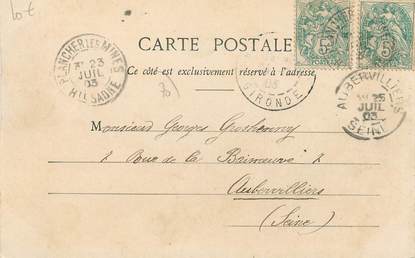 lot
CARTE POSTALE
Ce côté est exclusivement réservé à l'adresse
PLANCHER LES MINES
23
JUIL
03
HTE SAONE
5
5
POSTES
03
GIRONDE
AUBERVILLIERS
25
JUIL
03
SEINE
Monsieur Georges
2 Rue de la 2
Aubervilliers
(Seine)